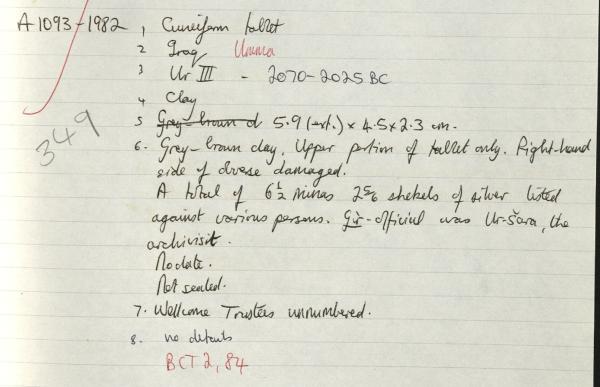 A1093-1982 1 Cuneiform tablet
2 Iraq Umma
3 Ur III - 2070-2025 BC
4 Clay
5 Grey-brown d 5.9 (ext.) x 4.5 x 2.3 cm.
349
6. Grey-brown clay. Upper portion of tablet only. Right-hand
side of obverse damaged.
A total of 6½ minas 2⅚ shekels of silver listed
against various persons. Gìr-official was Ur-Šara, the
archivisit.
No date.
Not sealed.
7. Wellcome Trustees unnumbered.
8. no details
BCT 2, 84